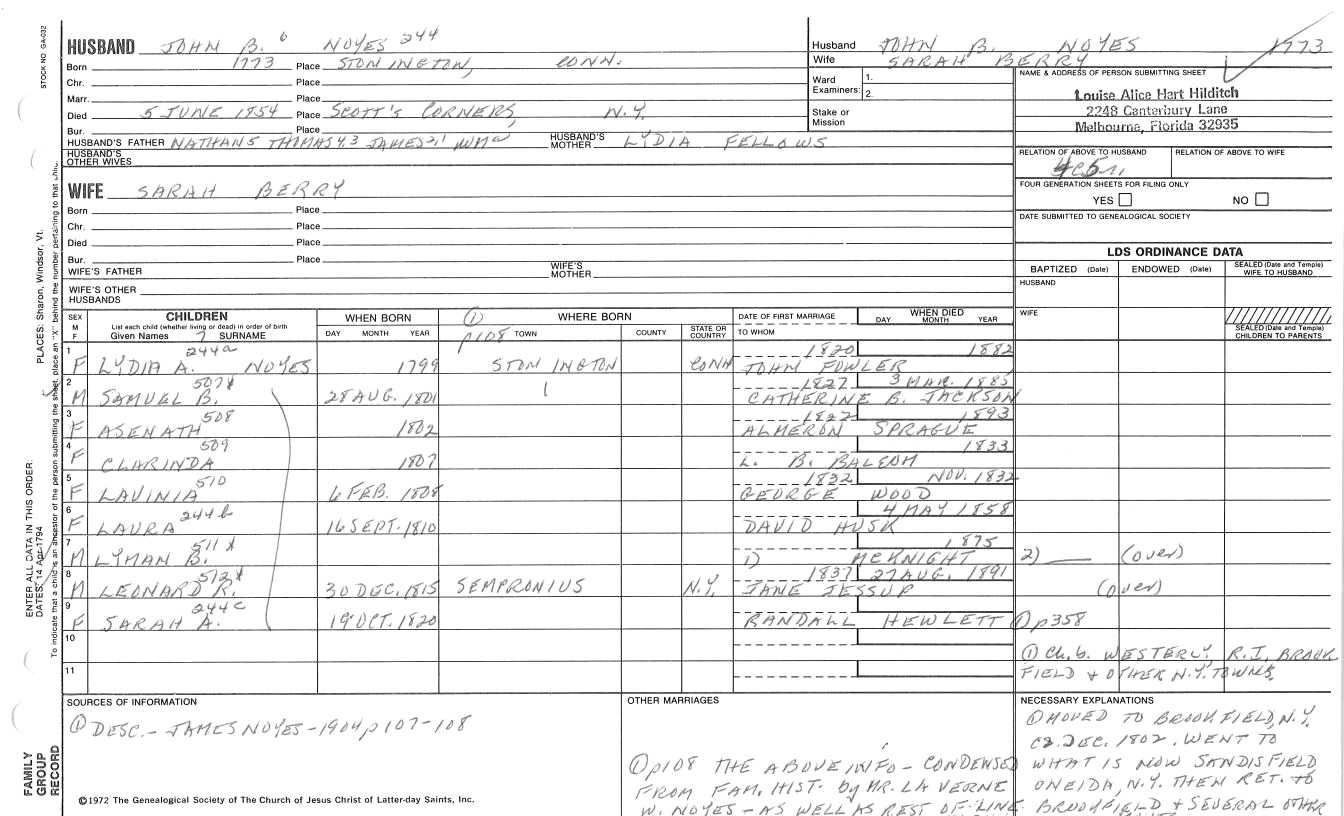 STOCK NO GA-032
HUSBAND JOHN B. 6 NOYES 244
Born 1773 Place STONINGTON, CONN.
Chr. Place
Marr. Place
Died 5 JUNE 1854 Place SCOTT'S CORNERS, N.Y.
Bur. Place
HUSBAND'S FATHER NATHAN5 THOMAS4,3 JAMES2,1 HUSBAND'S MOTHER LYDIA FELLOWS
HUSBAND'S OTHER WIVES
WIFE SARAH BERRY
Born Place
Chr. Place
Died Place
Bur. Place
WIFE'S FATHER WIFE'S MOTHER
WIFE'S OTHER HUSBANDS
Husband JOHN B. NOYES 1773
Wife SARAH BERRY
Ward Examiners: 1. 2.
Stake or Mission
NAME & ADDRESS OF PERSON SUBMITTING SHEET
Louise Alice Hart Hilditch
2248 Canterbury Lane
Melbourne, Florida 32935
RELATION OF ABOVE TO HUSBAND RELATION OF ABOVE TO WIFE
FOUR GENERATION SHEETS FOR FILING ONLY
YES NO
DATE SUBMITTED TO GENEALOGICAL SOCIETY
LDS ORDINANCE DATA
BAPTIZED (Date) ENDOWED (Date) SEALED (Date and Temple) WIFE TO HUSBAND
HUSBAND
WIFE
SEALED (Date and Temple) CHILDREN TO PARENTS
SEX M F CHILDREN List each child (whether living or dead) in order of birth Given Names 7 SURNAME
WHEN BORN DAY MONTH YEAR
① p108 WHERE BORN TOWN COUNTY STATE OR COUNTRY
DATE OF FIRST MARRIAGE TO WHOM
WHEN DIED DAY MONTH YEAR
1 F LYDIA A. 244a NOYES 1799 STONINGTON CONN 1820 1882 JOHN FOWLER
2 M SAMUEL B. 507x 28 AUG. 1801 1827 3 MAR. 1885 CATHERINE B. JACKSON
3 F ASENATH 508 1802 1822 1893 ALMERON SPRAGUE
4 F CLARINDA 509 1807 1833 L. B. BALCOM
5 F LAVINIA 510 6 FEB. 1808 1832 NOV. 1832 GEORGE WOOD
6 F LAURA 244b 16 SEPT. 1810 4 MAY 1858 DAVID HUSK
7 M LYMAN B. 511x 1875 1) MCKNIGHT 2) (over)
8 M LEONARD R. 512x 30 DEC. 1815 SEMPRONIUS N.Y. 1837 27 AUG. 1891 JANE JESSUP (over)
9 F SARAH A. 244c 19 OCT. 1820 RANDALL HEWLETT ① p358
10
11
① Ch. 6. WESTERLY, R.I. BROOK
FIELD & OTHER N.Y. TOWNS.
SOURCES OF INFORMATION
① DESC.- JAMES NOYES-1904 p107-108
OTHER MARRIAGES
① p108 THE ABOVE INFO - CONDENSED
FROM FAM. HIST. by MR. LA VERNE
W. NOYES - AS WELL AS REST OF LINE
NECESSARY EXPLANATIONS
① MOVED TO BROOKFIELD, N.Y.
DEC. 1802. WENT TO
WHAT IS NOW SANDISFIELD
ONEIDA, N.Y. THEN RET. to
BROOKFIELD & SEVERAL OTHER
©1972 The Genealogical Society of The Church of Jesus Christ of Latter-day Saints, Inc.
FAMILY GROUP RECORD
ENTER ALL DATA IN THIS ORDER:
DATES: 14 Apr 1794
PLACES: Sharon, Windsor, Vt.
To indicate that a child is an ancestor of the person submitting the sheet, place an "X" behind the number pertaining to that child.